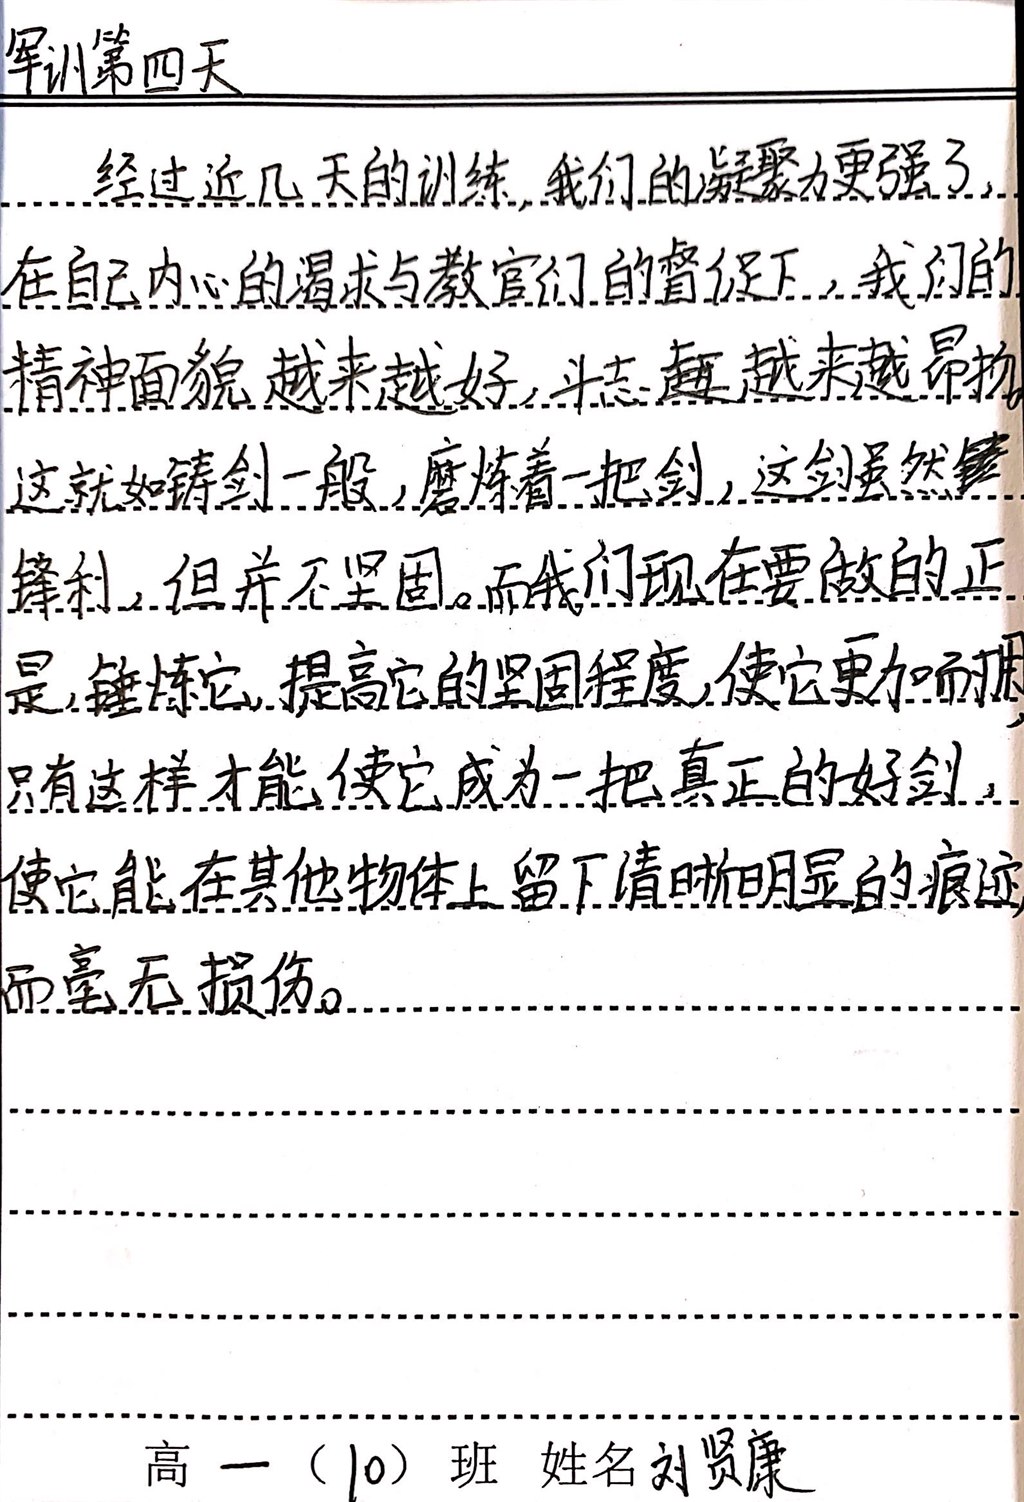 军训第四天
经过近几天的训练,我们的凝聚力更强了,
在自己内心的渴求与教官们的督促下,我们的
精神面貌越来越好,斗志越越来越昂扬。
这就如铸剑一般,磨炼着一把剑,这剑虽然
锋利,但并不坚固。而我们现在要做的正
是,锤炼它,提高它的坚固程度,使它更加耐用,
只有这样才能使它成为一把真正的好剑,
使它能在其他物体上留下清晰明显的痕迹,
而毫无损伤。
高一(10)班 姓名刘贤康